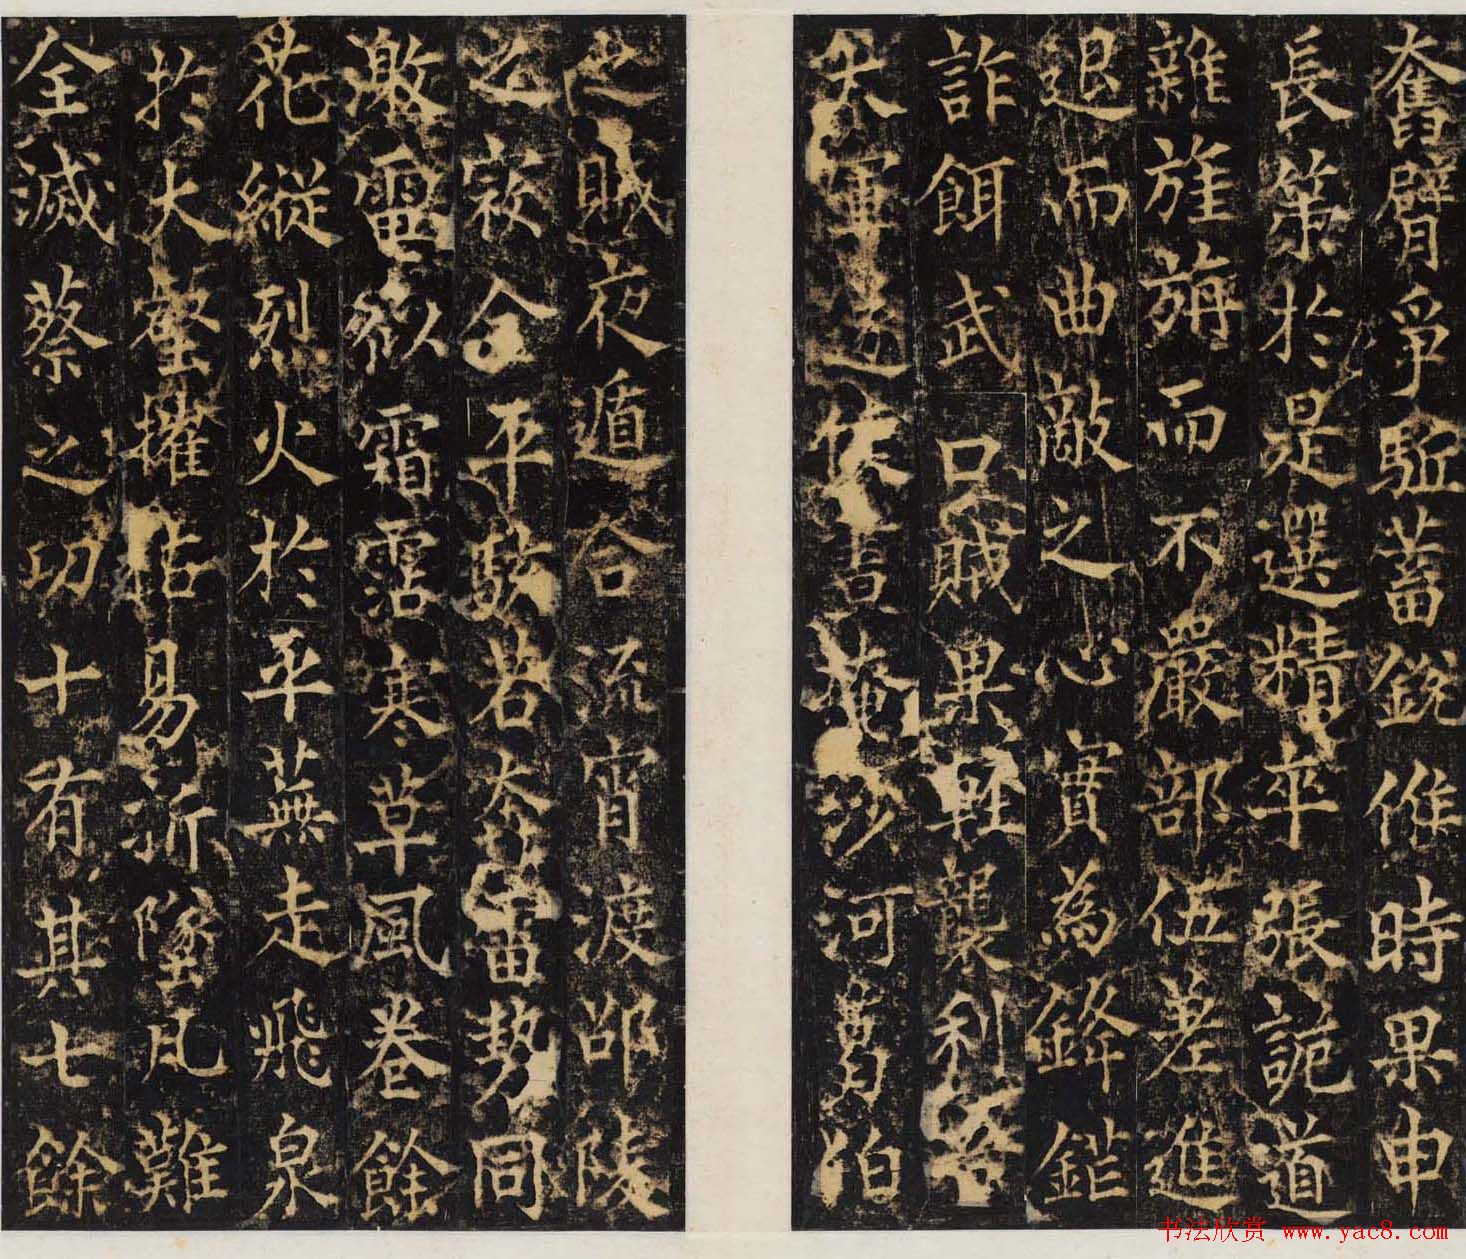 奮臂爭駈蓄銳惟時果申
長策於是選精卒張詭道
雜旌旃而不嚴部伍差進
退而曲敵之心實為鋒鎧
詐餌武口賊果輕襲利
大軍掩沙河
賊夜遁合流宵渡邵陵
之寂平駭若奔雷勢同
激電欲霜霑寒草風卷餘
花縱烈火於平蕪走飛泉
於大壑摧枯易折墜瓦難
全滅蔡之功十有其七餘
书法欣赏 www.yac8.com